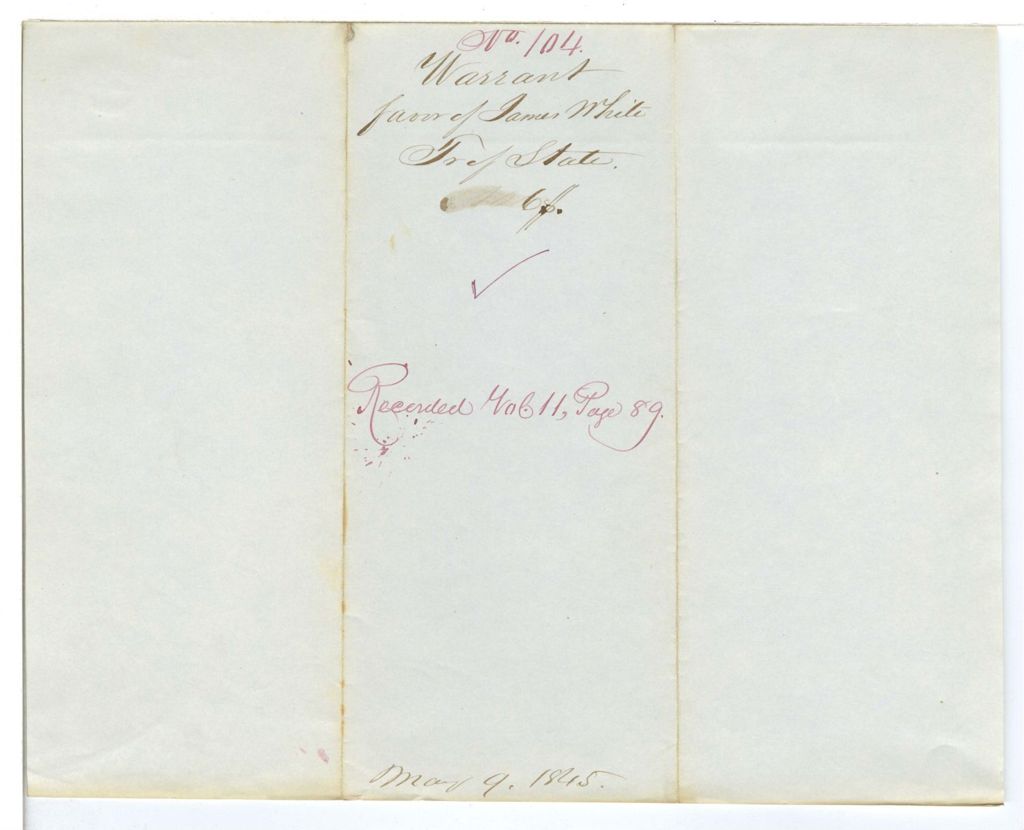 No. 104.
Warrant
favor of James White
Tr of State.
Recorded Vol. 11, Page 89.
May 9. 1845.